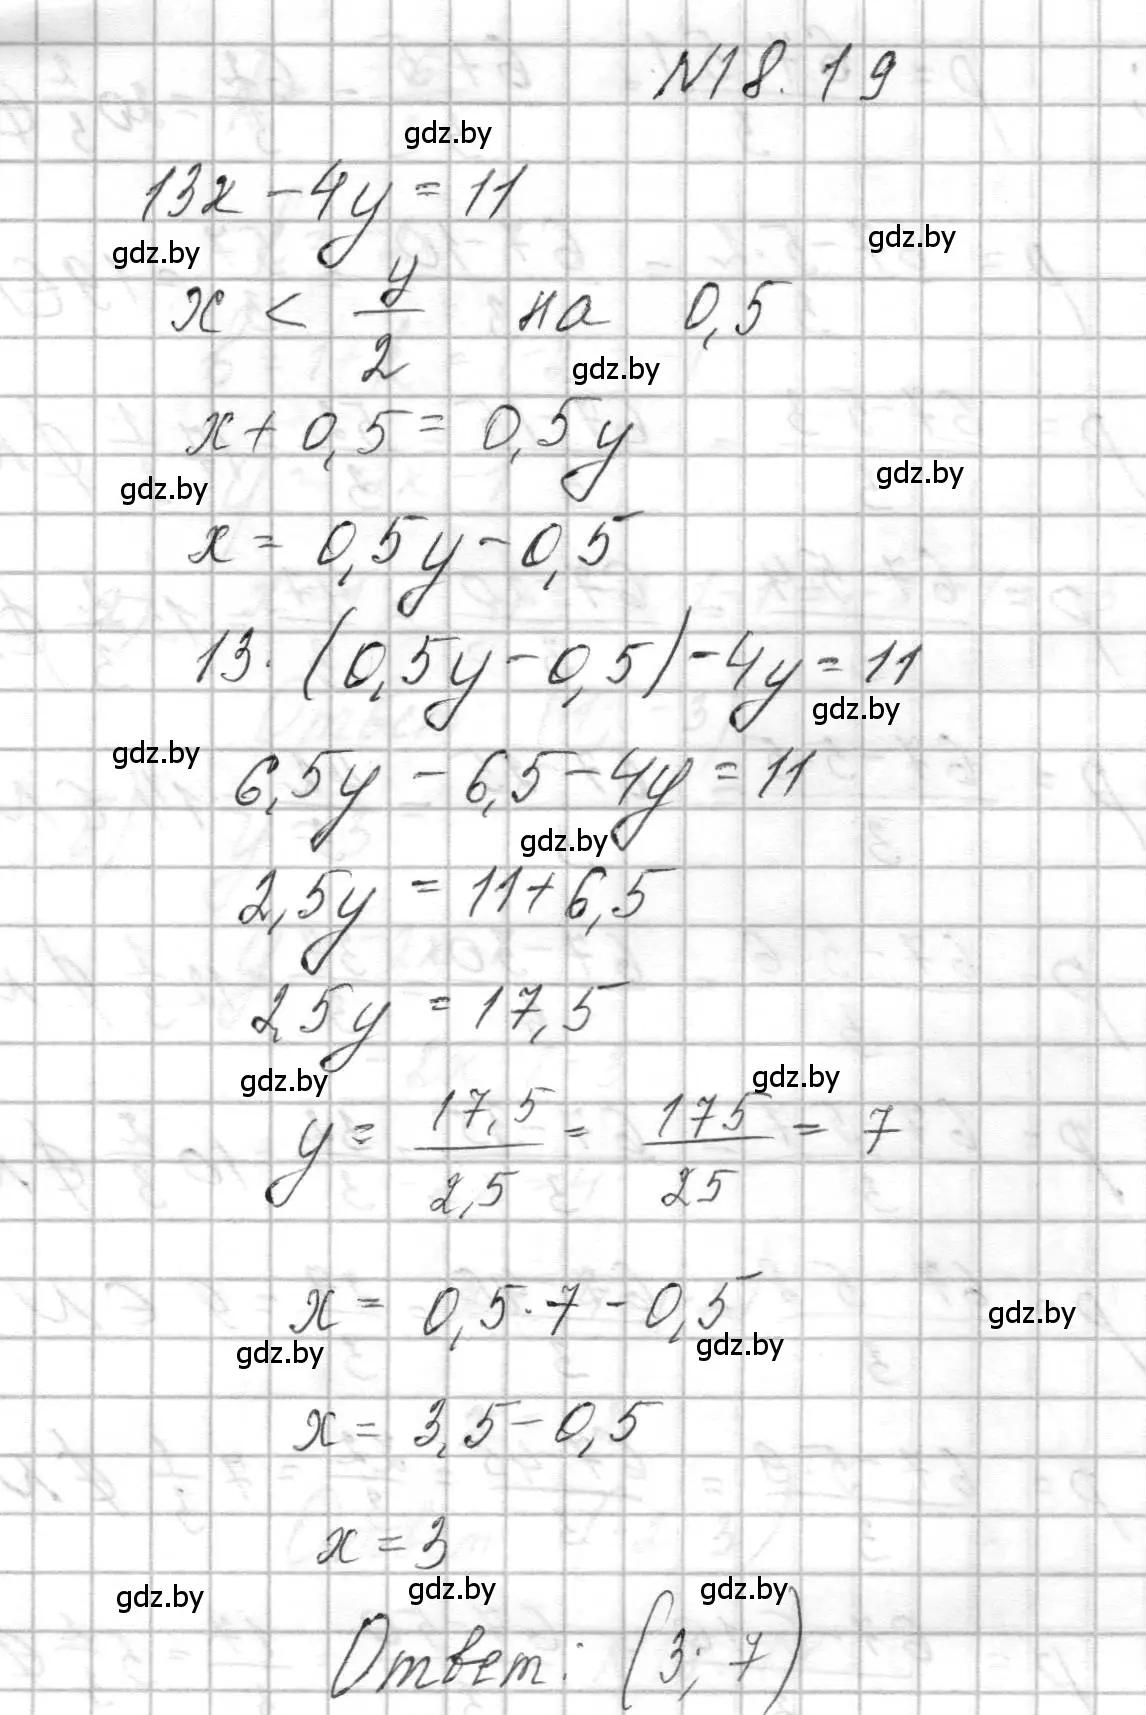 №18.19
gdz.by
13x - 4y = 11
gdz.by gdz.by
x < y/2 на 0,5
gdz.by
x + 0,5 = 0,5y
gdz.by gdz.by
x = 0,5y - 0,5
13 · (0,5y - 0,5) - 4y = 11
gdz.by gdz.by
6,5y - 6,5 - 4y = 11
gdz.by
2,5y = 11 + 6,5
2,5y = 17,5
gdz.by gdz.by
y = 17,5/2,5 = 175/25 = 7
x = 0,5 · 7 - 0,5
gdz.by gdz.by gdz.by
x = 3,5 - 0,5
x = 3
gdz.by gdz.by gdz.by
Ответ: (3; 7)